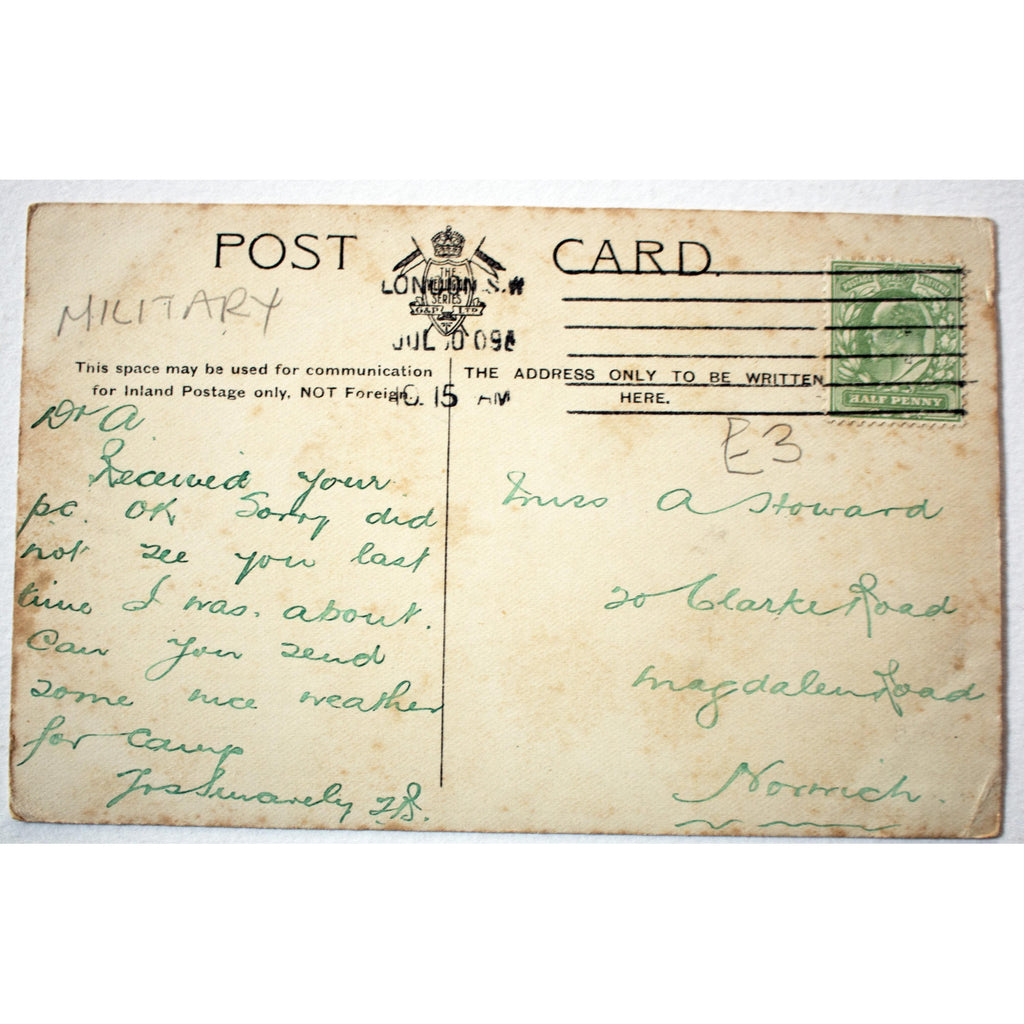 POST CARD
THE
SERIES
G&P LTD
LONDON S.W
JUL 10 09
10. 15 AM
POSTAGE & REVENUE
HALF PENNY
MILITARY
This space may be used for communication
for Inland Postage only, NOT Foreign.
THE ADDRESS ONLY TO BE WRITTEN
HERE.
E3
Dr A
Received your
pc. OK Sorry did
not see you last
time I was. about.
Can you send
some nice weather
for Camp
Yrs Sincerely
Miss A Howard
20 Clarke Road
Magdalen Road
Norwich.